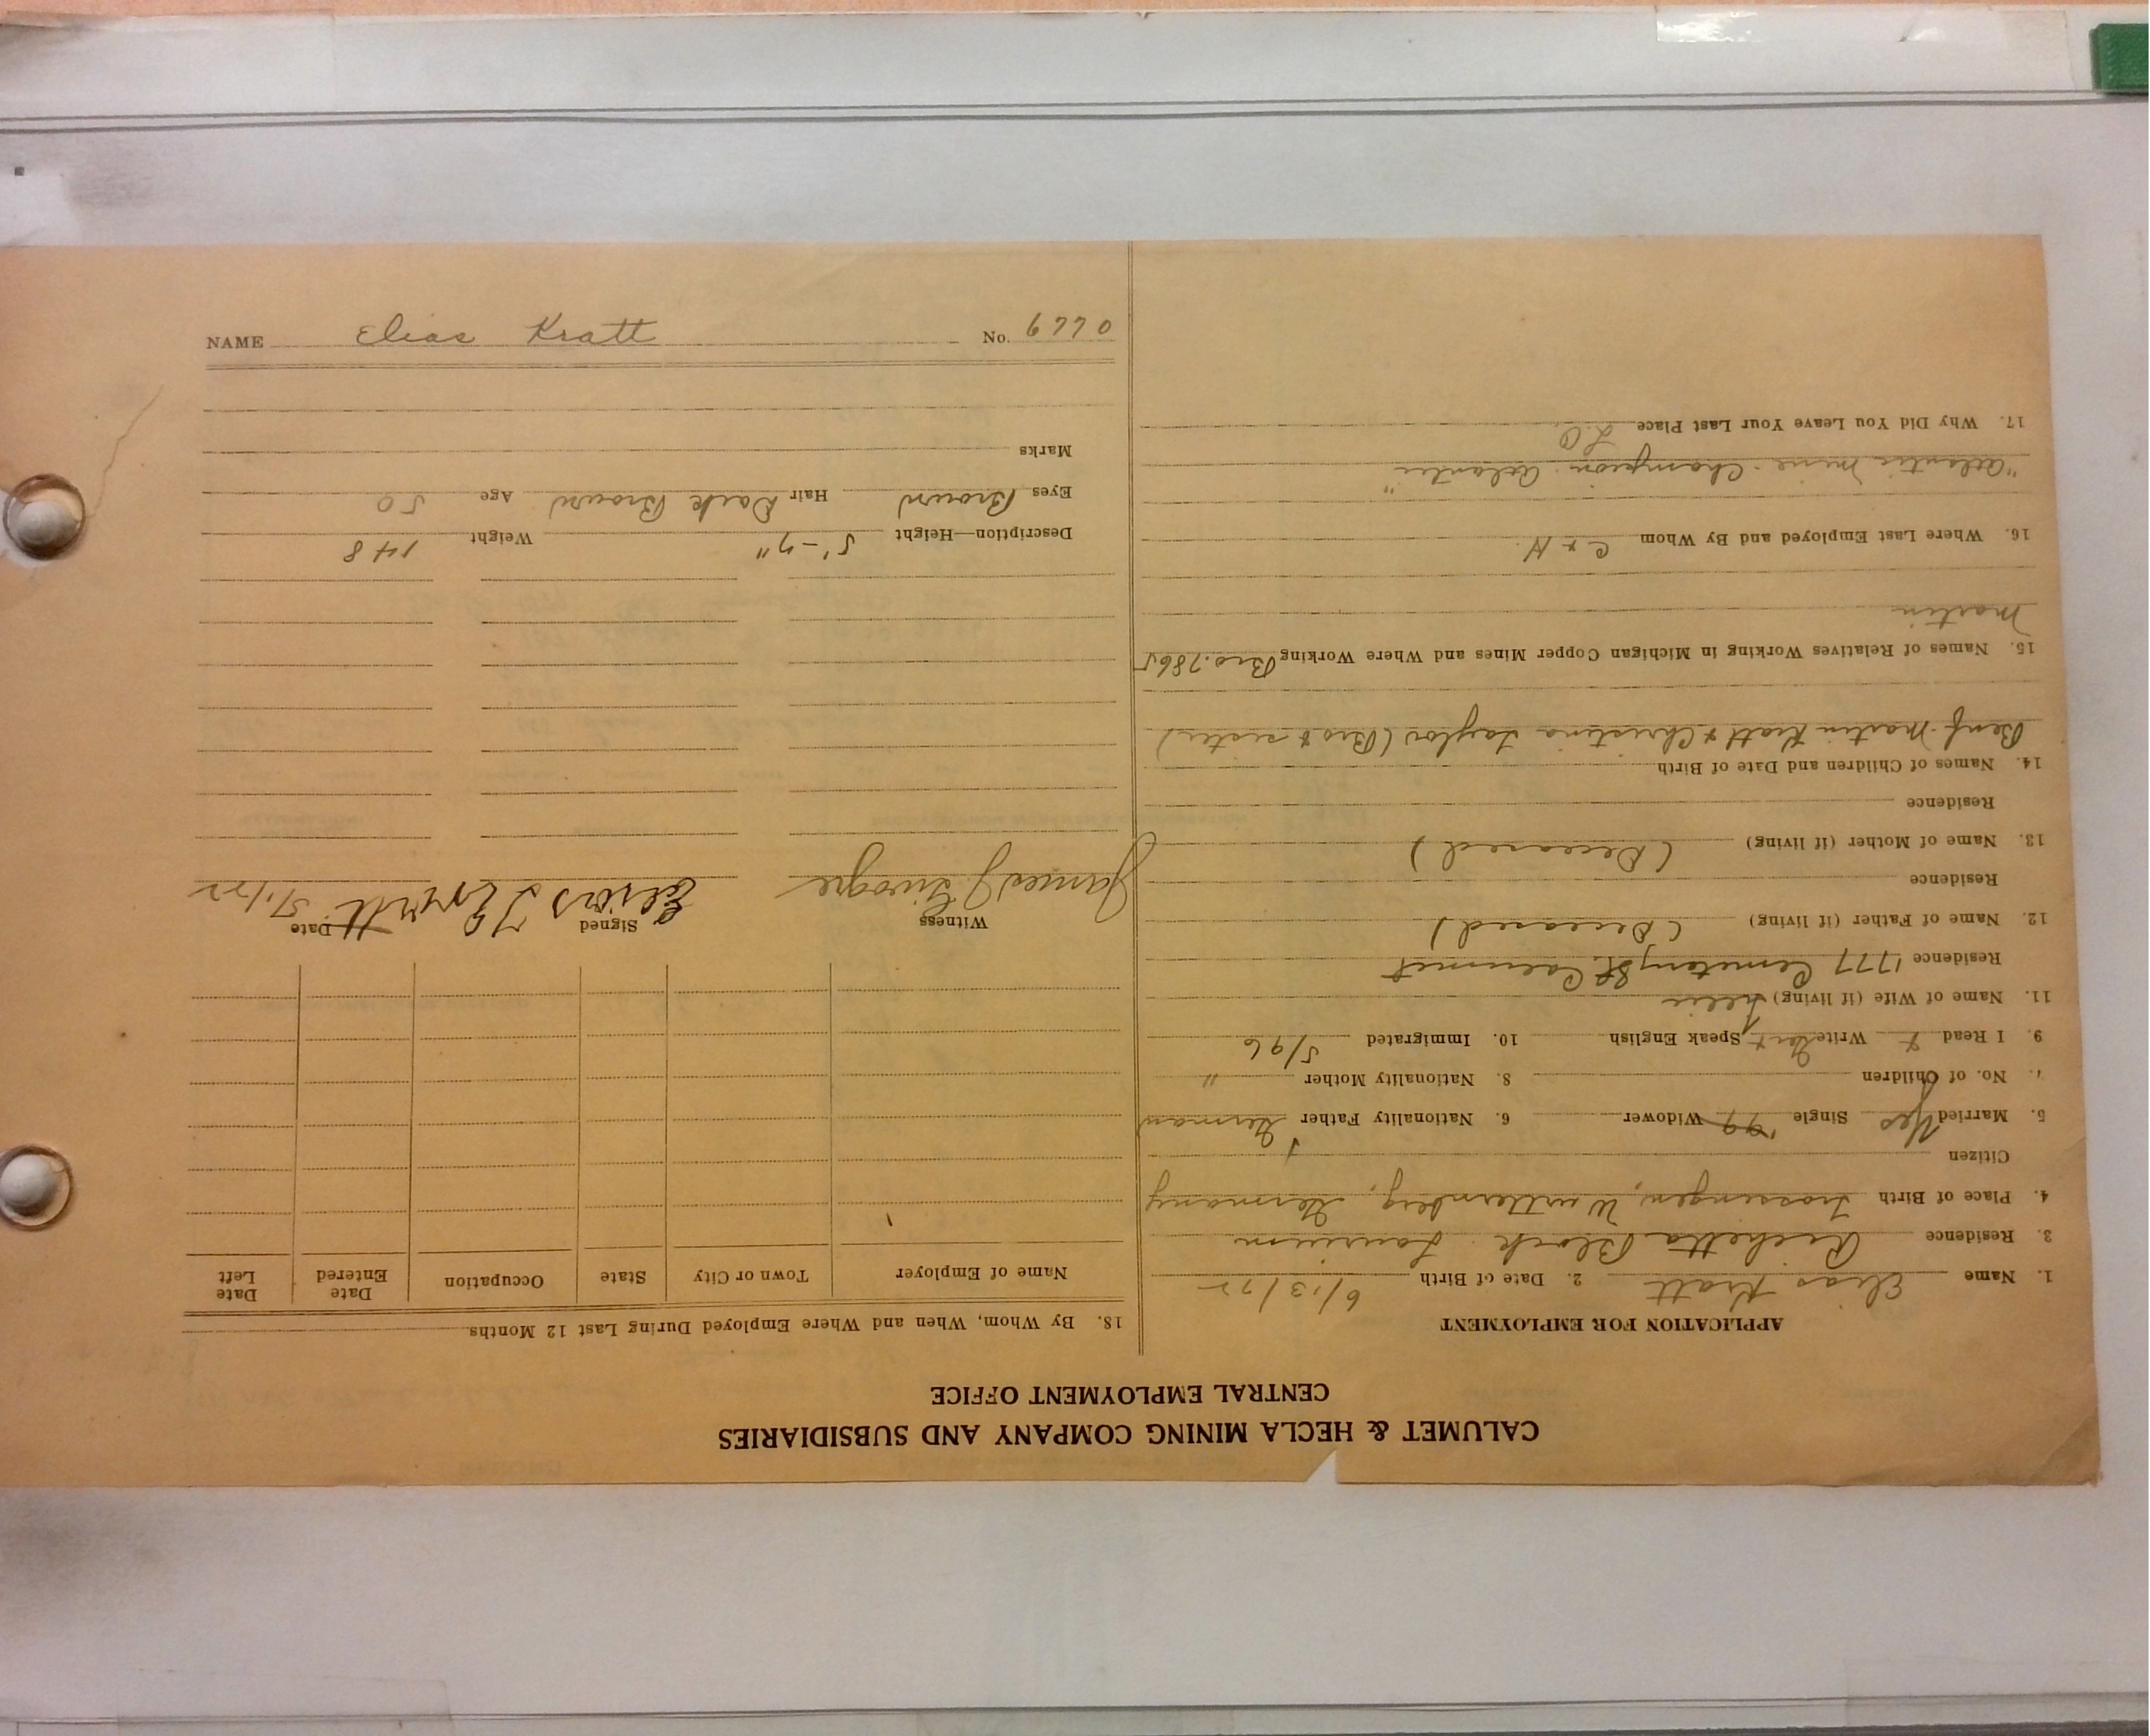 CALUMET & HECLA MINING COMPANY AND SUBSIDIARIES
CENTRAL EMPLOYMENT OFFICE
APPLICATION FOR EMPLOYMENT
1. Name Elias Kratt 2. Date of Birth 6/13/72
3. Residence Richetta Block Laurium
4. Place of Birth Trossingen, Wurttemberg, Germany
Citizen
5. Married Yes Single '99 Widower 6. Nationality Father German
7. No. of Children 8. Nationality Mother "
9. I Read x Write Speak English 10. Immigrated 5/96
11. Name of Wife (if living)
Residence 1777 Cemetary St. Calumet
12. Name of Father (if living) (Deceased)
Residence
13. Name of Mother (if living) (Deceased)
Residence
14. Names of Children and Date of Birth
Benf. Martin Kratt & Christina Taylor (Bro & sister)
15. Names of Relatives Working in Michigan Copper Mines and Where Working Bro. 7865
Martin
16. Where Last Employed and By Whom C & H.
"Atlantic mine - Champion - Atlantic"
17. Why Did You Leave Your Last Place L.O.
18. By Whom, When and Where Employed During Last 12 Months
Name of Employer Town or City State Occupation Date Entered Date Left
Witness Signed Date
James J Elias Kratt 5/1/22
Description—Height 5'-7" Weight 148
Eyes Brown Hair Dark Brown Age 50
Marks
NAME Elias Kratt No. 6770